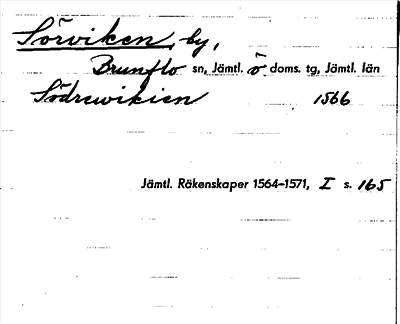 Sörviken, by,
Brunflo sn, Jämtl. ö doms. tg, Jämtl. län
Södrewikien 1566
Jämtl. Räkenskaper 1564–1571, I s. 165